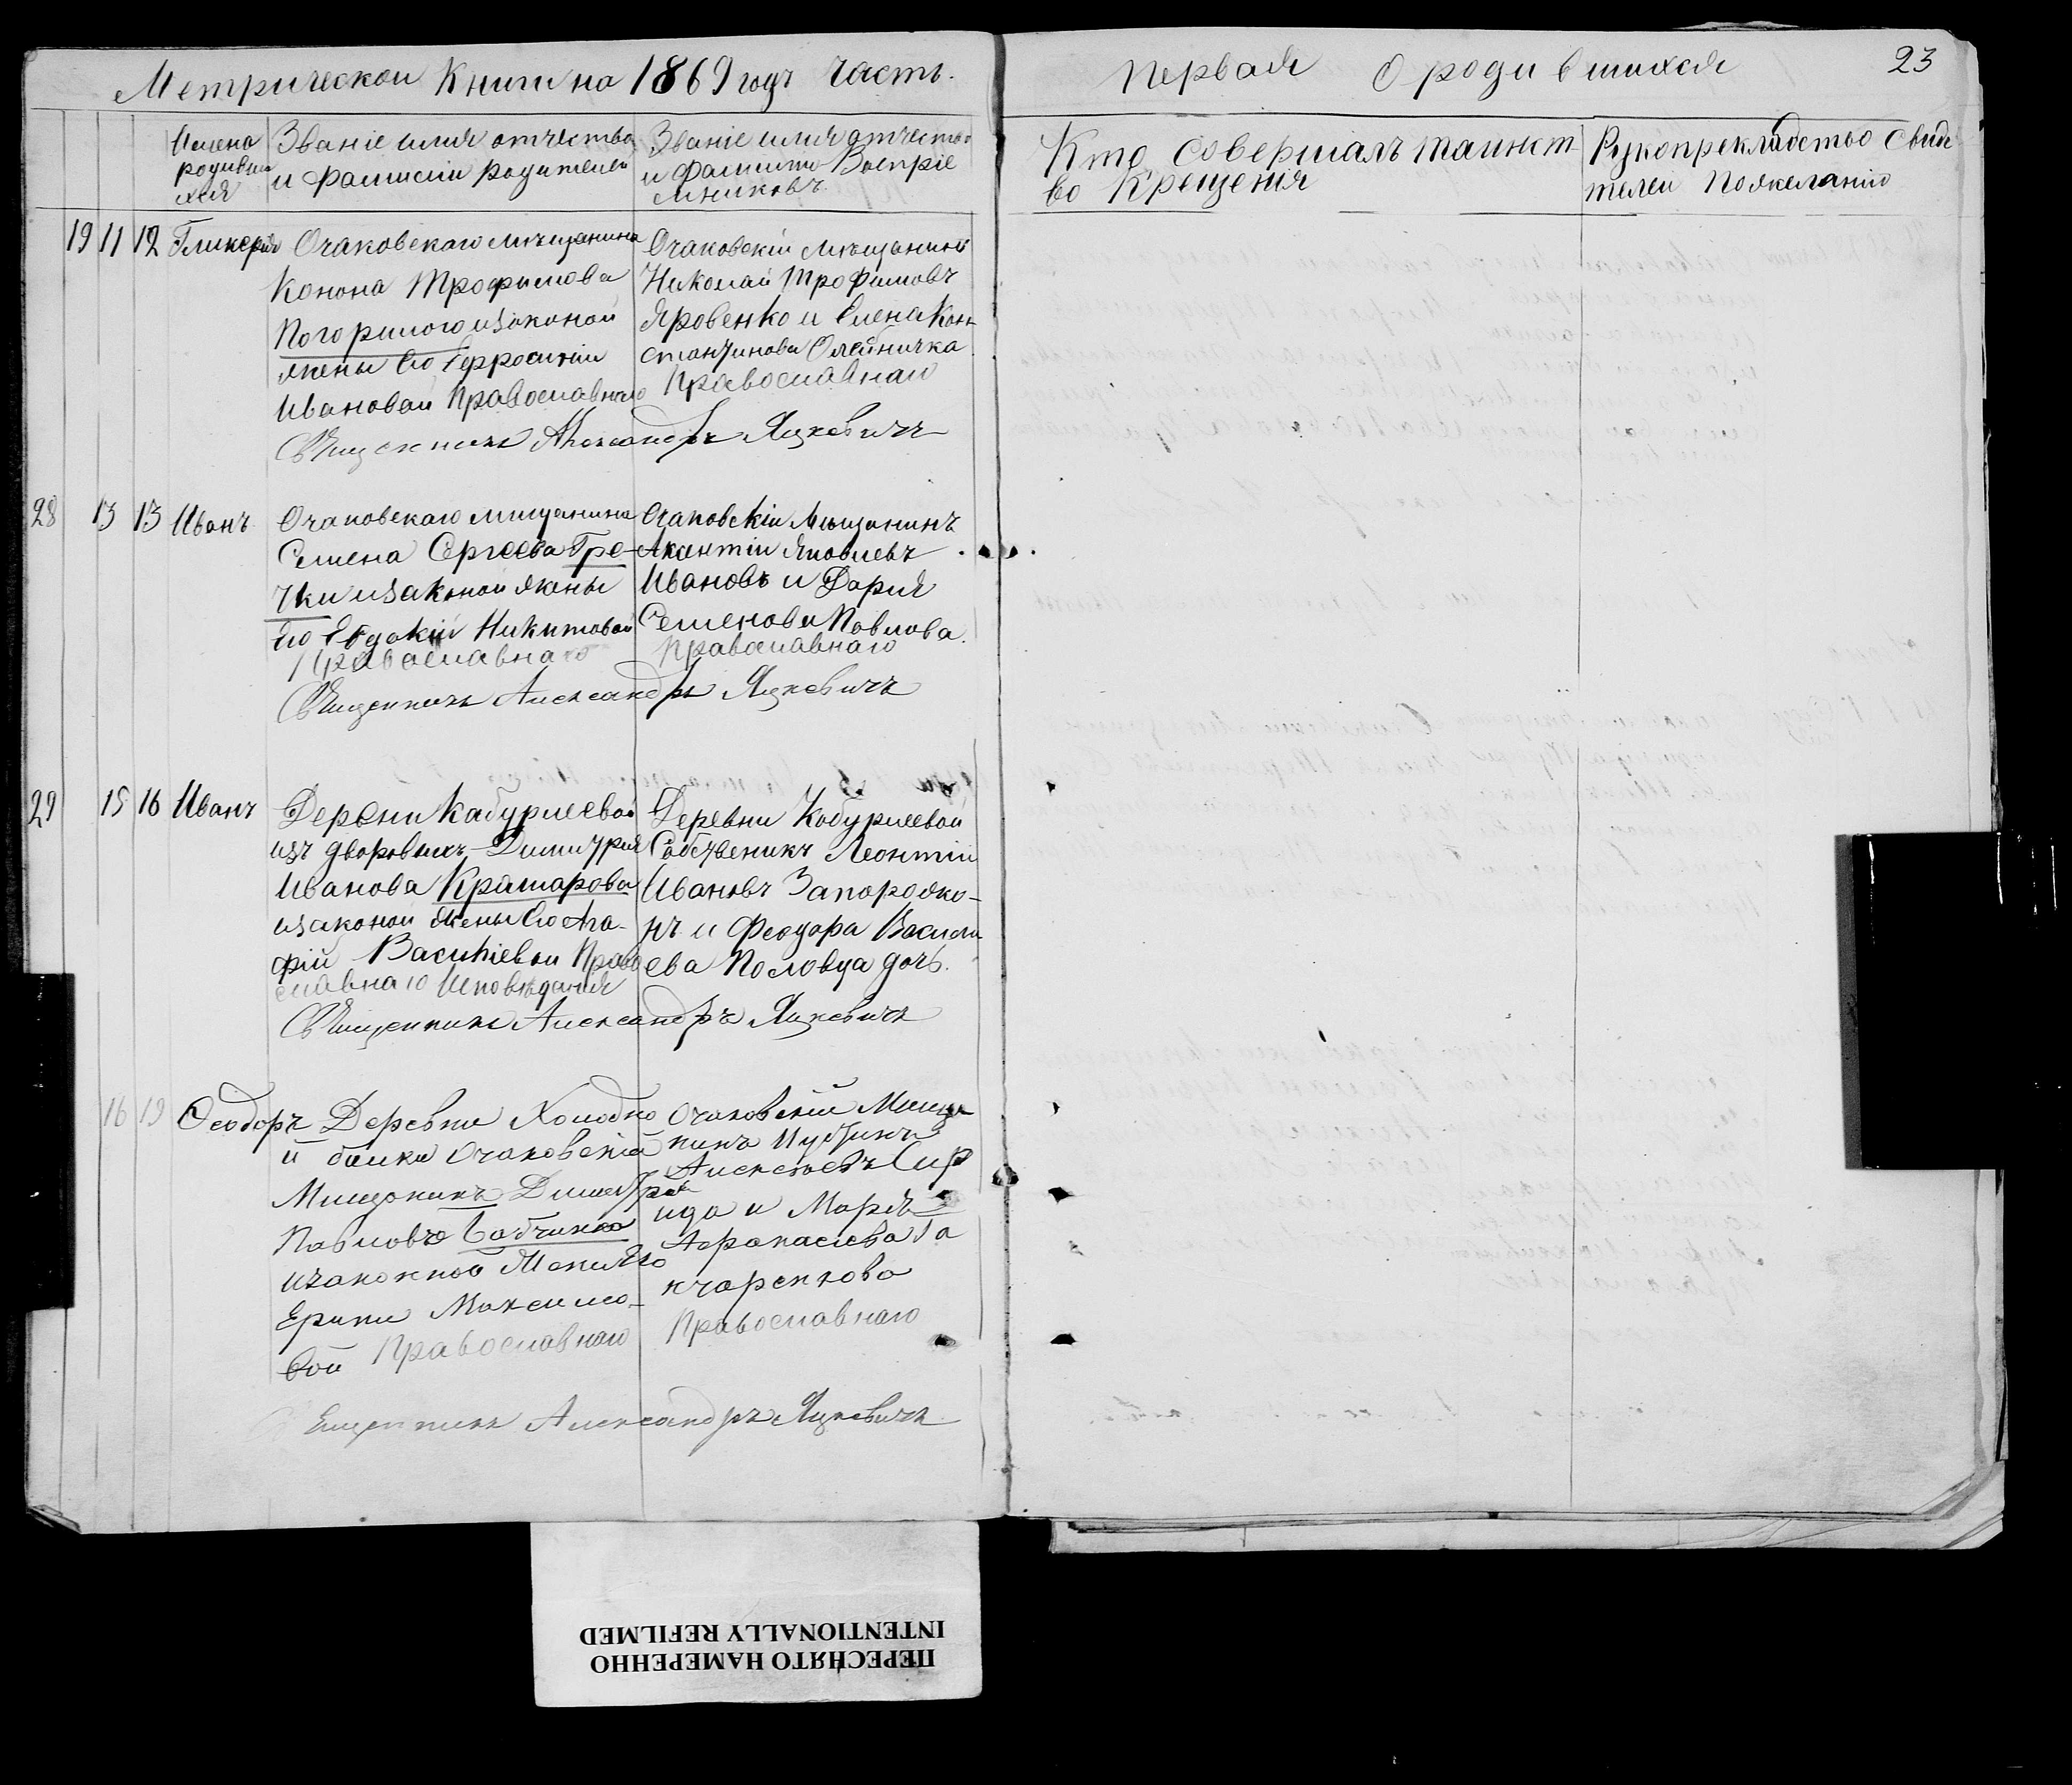 Метрической Книги на 1869 годъ Часть
Первая О родившихся 23
Имена
родивши
хся
Званіе имя отчество
и фамиліи родителей
Званіе имя отчество
и фамилію Воспріе
мниковъ
Кто совершалъ таинст
во Крещенія
Рукоприкладство свиде
телей по желанію
19 11 12 Гликерія
Очаковскаго мѣщанина
Конона Трофимова
Погорилого изаконой
жены Его Ефросиніи
Ивановой Православнаго
Очаковскій мѣщанинъ
Николай Трофимовъ
Яровенко и Елена Кон
стантинова Олейничка
Православнаго
Священникъ Александръ Яцкевичъ
28 13 13 Иванъ
Очаковскаго мищанина
Семена Сергеева Гре-
чки изаконой жены
Его Евдокіи Никитовой
Православнаго
Очаковскій Мыщанинъ
Яковлевъ
Ивановъ и Дарія
Семенова Павлова
Православнаго
Священникъ Александръ Яцкевичъ
29 15 16 Иванъ
Деревни Кабурлеевой
изъ дворовыхъ Димитрія
Иванова Крамарова
изаконой жены Его Ага-
фіи Василіевой Право
славнаго Исповѣданія
Деревни Кобурлеевой
Собственикъ Леонтій
Ивановъ Запорожо-
цъ и Феодора Васили
ева Половца дочь
Священникъ Александръ Яцкевичъ
16 19 Феодоръ
Деревни Холодно
й балки Очаковскій
Мищонинъ Димитрій
Павловъ Бабчинко
изаконной Жени Его
Ерини Максимо-
вой Православнаго
Очаковскій Мища
нинъ
Алексеевъ Сир
ида и Марѣ
Афанасиева Го
нчаренкова
Православнаго
Священникъ Александръ Яцкевичъ
ПЕРЕСНЯТО НАМЕРЕННО
INTENTIONALLY REFILMED